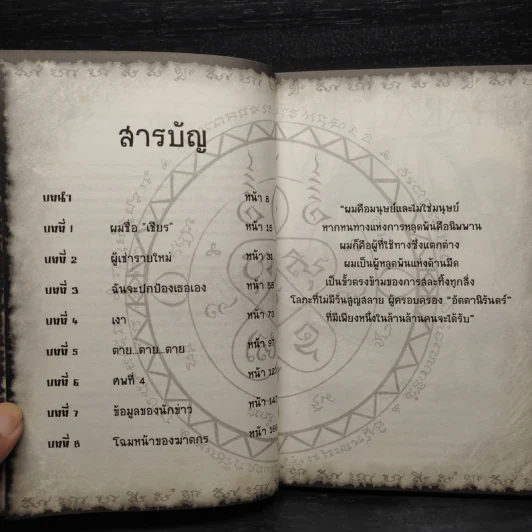 สารบัญ
บทนำ หน้า 8
บทที่ 1 ผมชื่อ "เชียร" หน้า 15
บทที่ 2 ผู้เช่ารายใหม่ หน้า 31
บทที่ 3 ฉันจะปกป้องเธอเอง หน้า 55
บทที่ 4 เงา หน้า 73
บทที่ 5 ตาย...ตาย...ตาย หน้า 97
บทที่ 6 ศพที่ 4 หน้า
บทที่ 7 ข้อมูลของนักข่าว หน้า
บทที่ 8 โฉมหน้าของฆาตกร หน้า
"ผมคือมนุษย์และไม่ใช่มนุษย์
หากหนทางแห่งการหลุดพ้นคือนิพพาน
ผมก็คือผู้ที่ใช้ทางซึ่งแตกต่าง
ผมเป็นผู้หลุดพ้นแห่งด้านมืด
เป็นขั้วตรงข้ามของการสละทิ้งทุกสิ่ง
โลกะที่ไม่มีวันสูญสลาย ผู้ครอบครอง "อัตตานิรันดร์"
ที่มีเพียงหนึ่งในล้านล้านคนจะได้รับ"